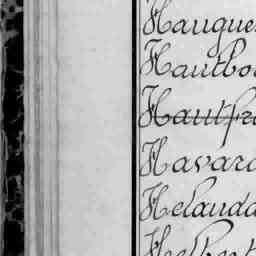 Hauque
Hautbo
Hautfr
Havard
Helauda